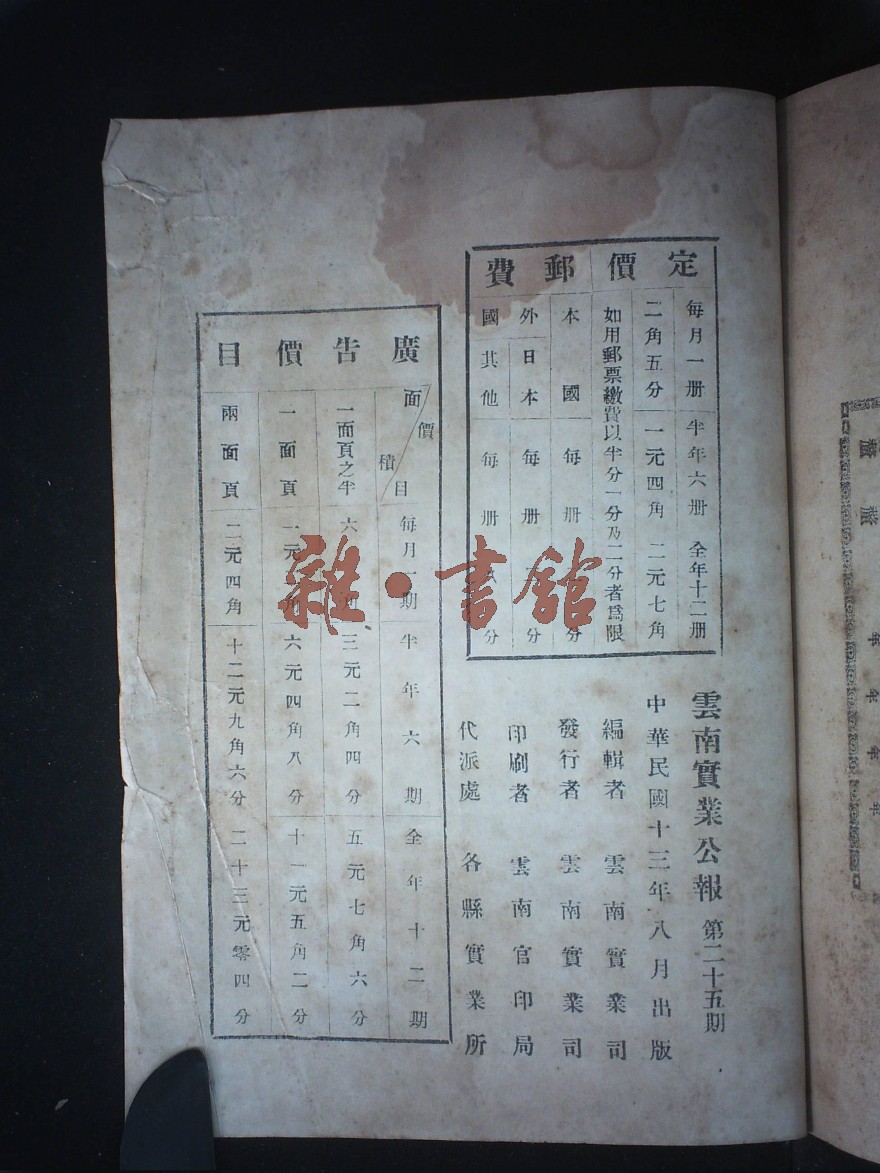 定價郵費
每月一册 半年六册 全年十二册
二角五分 一元四角 二元七角
如用郵票繳費以半分一分及二分者爲限
本國 每册 分
外國 日本 每册 分
其他 每册 分
雲南實業公報 第二十五期
中華民國十三年八月出版
編輯者 雲南實業司
發行者 雲南實業司
印刷者 雲南官印局
代派處 各縣實業所
廣告價目
面積 價目 每月一期 半年六期 全年十二期
一面頁之半 六 三元二角四分 五元七角六分
一面頁 一元 角 六元四角八分 十一元五角二分
兩面頁 二元四角 十二元九角六分 二十三元零四分
雜·書館